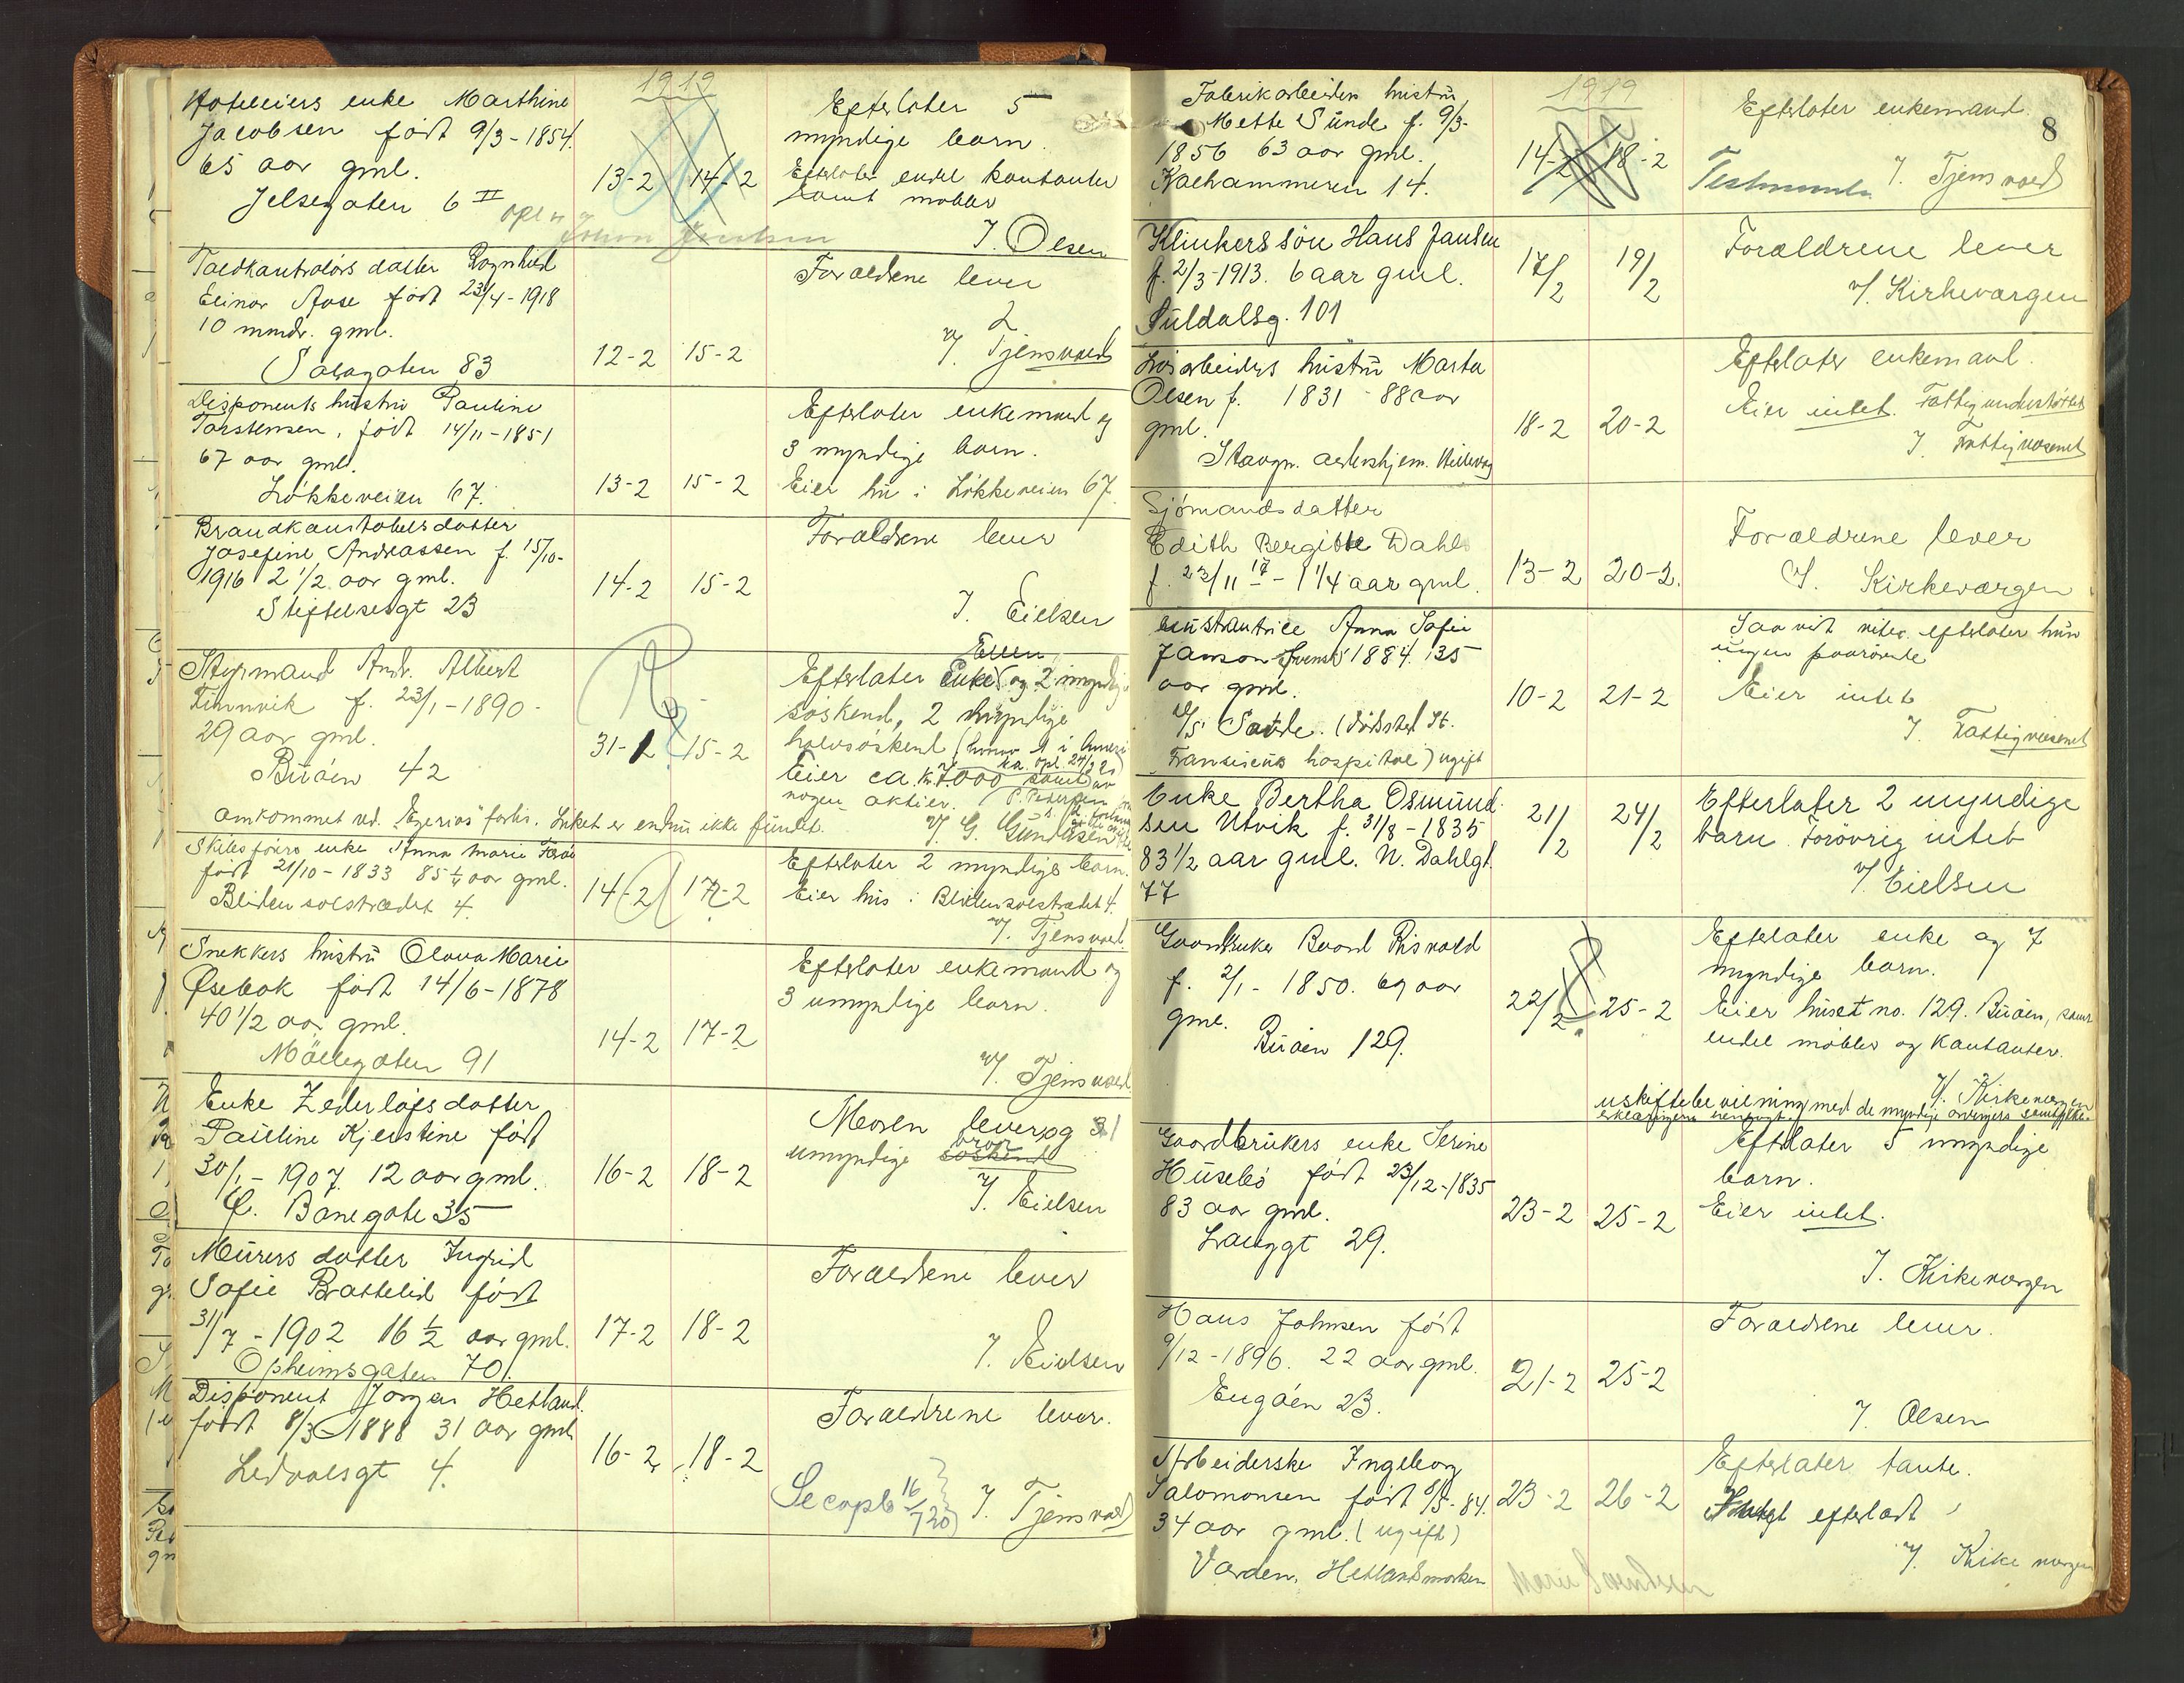 1919
Hoteleiers enke Marthine
Jacobsen født 9/3-1854.
65 aar gml.
Jelsegaten 6 II
13-2 14-2
Efterlater 5
myndige barn.
Efterlater endel kontanter
samt møbler
J. Olsen
Toldkontrolørs datter Ragnhild
Elinor Aase født 23/4-1918
10 mndr. gml.
12-2 15-2
Forældrene lever
v/ Tjensvold
83
Disponents hustru Pauline
Torstensen, født 14/11-1851
67 aar gml.
Løkkeveien 67.
13-2 15-2
Efterlater enkemand og
3 myndige barn.
Eier hus i Løkkeveien 67.
Brandkonstabels datter
Josefine Andreassen f. 15/10-
1916 2 1/2 aar gml.
Stiftelsesgt 23
14-2 15-2
Forældrene lever
J. Eielsen
Styrmand Andr. Albert
Finnvik f. 23/1-1890-
29 aar gml.
Buøen 42
31-1 15-2
Efterlater enke og 2 myndige
søskend, 2 myndige
halvsøskend (hvorav 1 i Amerika
Eier ca kr. 7000 samt
nogen aktier.
omkommet ved "Egerias" forlis. Liket er endnu ikke fundet.
v/ G. Gundersen
enke Anna Marie
født 21/10-1833 85 1/4 aar gml.
Blidensolstrædet 4.
14-2 17-2
Efterlater 2 myndige barn.
Eier hus i Blidensolstrædet 4.
v/. Tjensvold
Snekkers hustru Olava Marie
Øsebak født 14/6-1878
40 1/2 aar gml.
Møllegaten 91
14-2 17-2
Efterlater enkemand og
3 umyndige barn.
v/. Tjensvold
Enke Zederløfs datter
Pauline Kjerstine født
30/1-1907. 12 aar gml.
Ø. Banegate 35
16-2 18-2
Moren lever og 1
umyndige bror søskend
J. Eielsen
Murers datter Ingrid
Sofie Brattelid født
31/7-1902 16 1/2 aar gml.
Opheimsgaten 70.
17-2 18-2
Forældrene lever
J. Eielsen
Disponent Jørgen Hetland.
født 8/3 1888 31 aar gml
Ledaalsgt 4.
16-2 18-2
Forældrene lever.
J. Tjensvold
8
1919
Fabrikarbeiders hustru
Mette Sunde f. 9/3-
1856 63 aar gml.
Kalhammeren 14.
14-2 18-2
Efterlater enkemand.
J. Tjensvold
Klinkers søn Hans Jansen
f. 2/3-1913. 6 aar gml.
Suldalsg. 101
17/2 19/2
Forældrene lever
v/. Kirkevergen
Løsarbeiders hustru Marta
Olsen f. 1831 - 88 aar
gml.
Stavgn. aldershjem. Hillevaag
18-2 20-2
Efterlater enkemand.
Eier intet. Fattigunderstøttet
J. Fattigvæsenet
Sjømands datter
Edith Bergitte Dahl
f. 23/11 17 - 1 1/4 aar gml.
13-2 20-2.
Forældrene lever
J. Kirkevergen
Anna Sofie
Janson Svensk 1884. 35
aar gml.
(dødssted St.
Fransiscus hospital) ugift
10-2 21-2
Saavidt vites efterlater hun
ingen paarørende
Eier intet
J. Fattigvæsenet
Enke Bertha Osmund-
sen Utvik f. 31/8-1835
83 1/2 aar gml. N. Dahlgt.
77
21/2 24/2
Efterlater 2 myndige
barn. Forøvrig intet
v/. Eielsen
Gaardbruker Baard Risvold
f. 2/1-1850. 69 aar
gml.
Buøen 129.
22/2 25-2
Efterlater enke og 7
myndige barn.
Eier huset no. 129. Buøen, samt
endel møbler og kontanter.
v/. Kirkevergen
uskiftebevilning med de myndige arvingers samtykke
Gaardbrukers enke Serine
Husebø født 23/12-1835
83 aar gml.
Langgt 29.
23-2 25-2
Efterlater 5 myndige
barn.
Eier intet.
J. Kirkevergen
Hans Johnsen født
9/12-1896. 22 aar gml.
Engøen 23.
21-2 25-2
Forældrene lever.
J. Olsen
Arbeiderske Ingeborg
Salomonsen født 6/5-84.
34 aar gml. (ugift)
Varden, Hetlandsmarken
23-2 26-2
Efterlater tante.
Intet efterladt
J. Kirkevergen